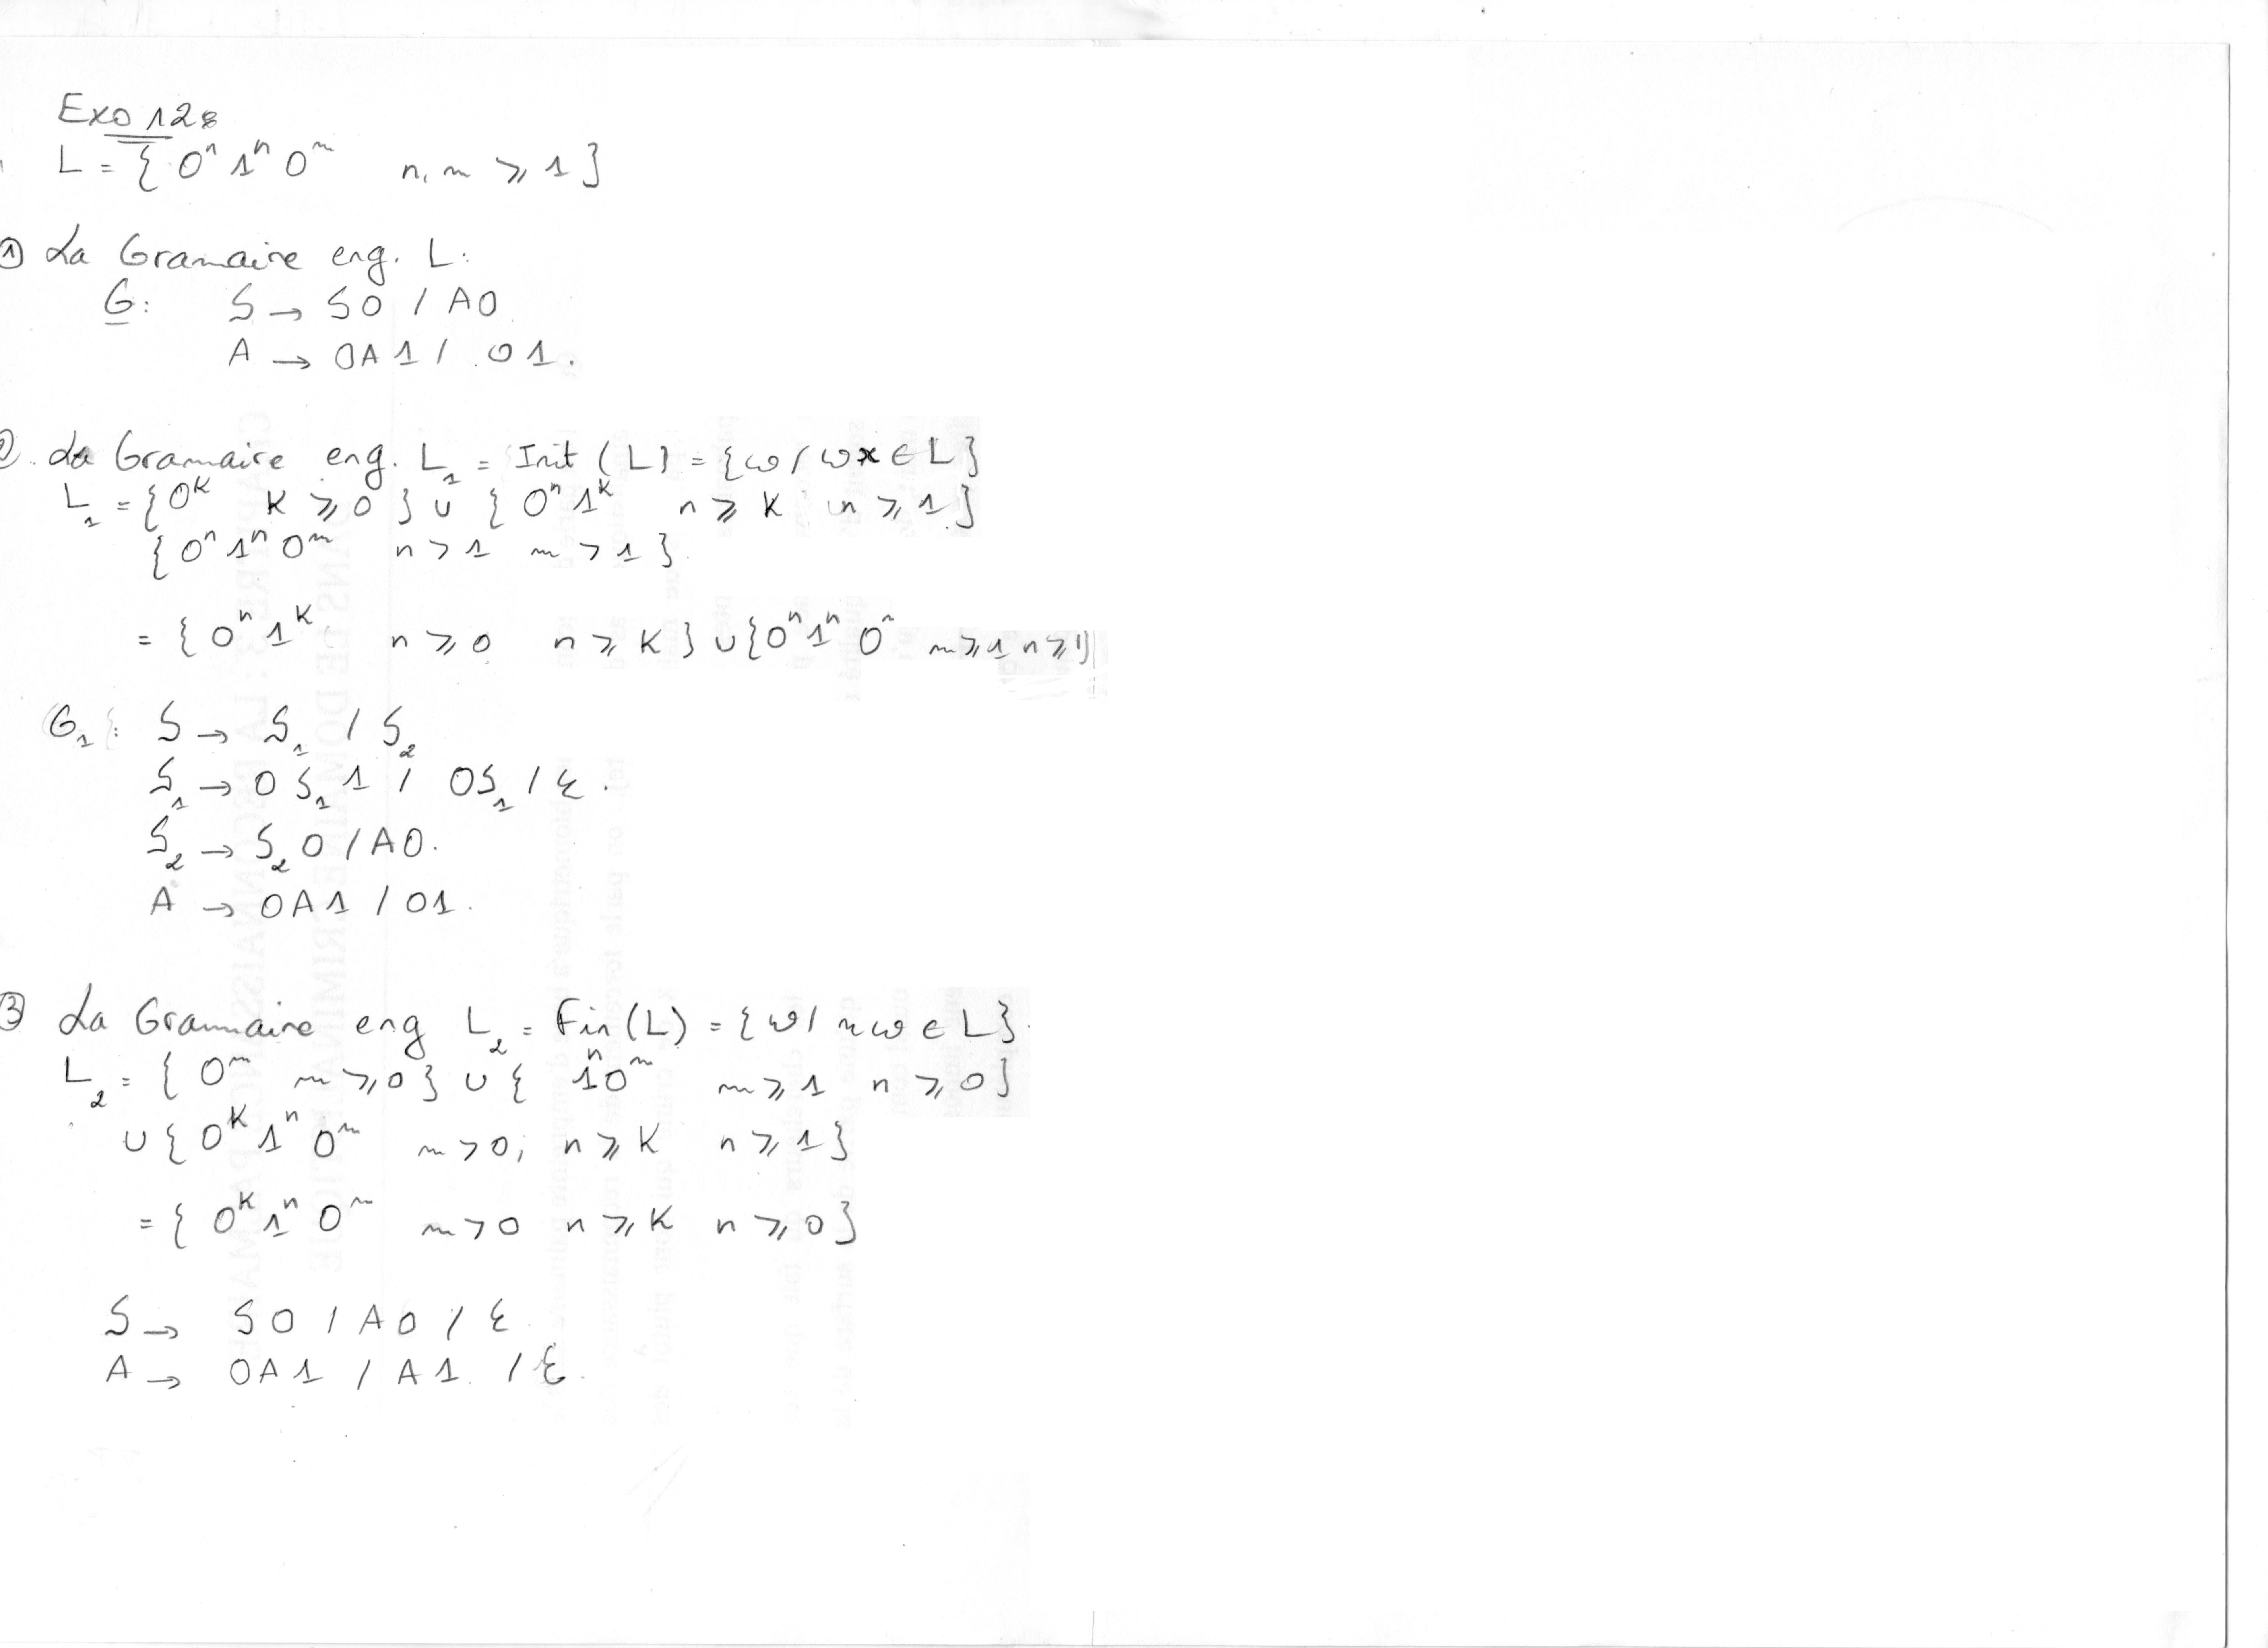 Exo 128
L = { 0ⁿ 1ⁿ 0ᵐ n, m ⩾ 1 }
① La Gramaire eng. L:
G: S → S0 / A0
A → 0A1 / 01.
2. La Gramaire eng. L₁ = Init (L) = {ω / ωx ∈ L}
L₁ = {0ᴷ K ⩾ 0 } ∪ { 0ⁿ 1ᴷ n ⩾ K n ⩾ 1 }
{ 0ⁿ 1ⁿ 0ᵐ n > 1 m > 1 }.
= { 0ⁿ 1ᴷ n ⩾ 0 n ⩾ K } ∪ {0ⁿ 1ⁿ 0ᵐ m ⩾ 1 n ⩾ 1}
G₁: S → S₁ / S₂
S₁ → 0 S₁ 1 / 0S₁ / ε.
S₂ → S₂ 0 / A0.
A → 0A1 / 01.
③ La Grammaire eng L₂ = Fin (L) = {ω / xω ∈ L}.
L₂ = { 0ᵐ m ⩾ 0 } ∪ { 1ⁿ0ᵐ m ⩾ 1 n ⩾ 0 }
∪ { 0ᴷ 1ⁿ 0ᵐ m > 0; n ⩾ K n ⩾ 1 }
= { 0ᴷ 1ⁿ 0ᵐ m > 0 n ⩾ K n ⩾ 0 }
S → S0 / A0 / ε
A → 0A1 / A1 / ε.